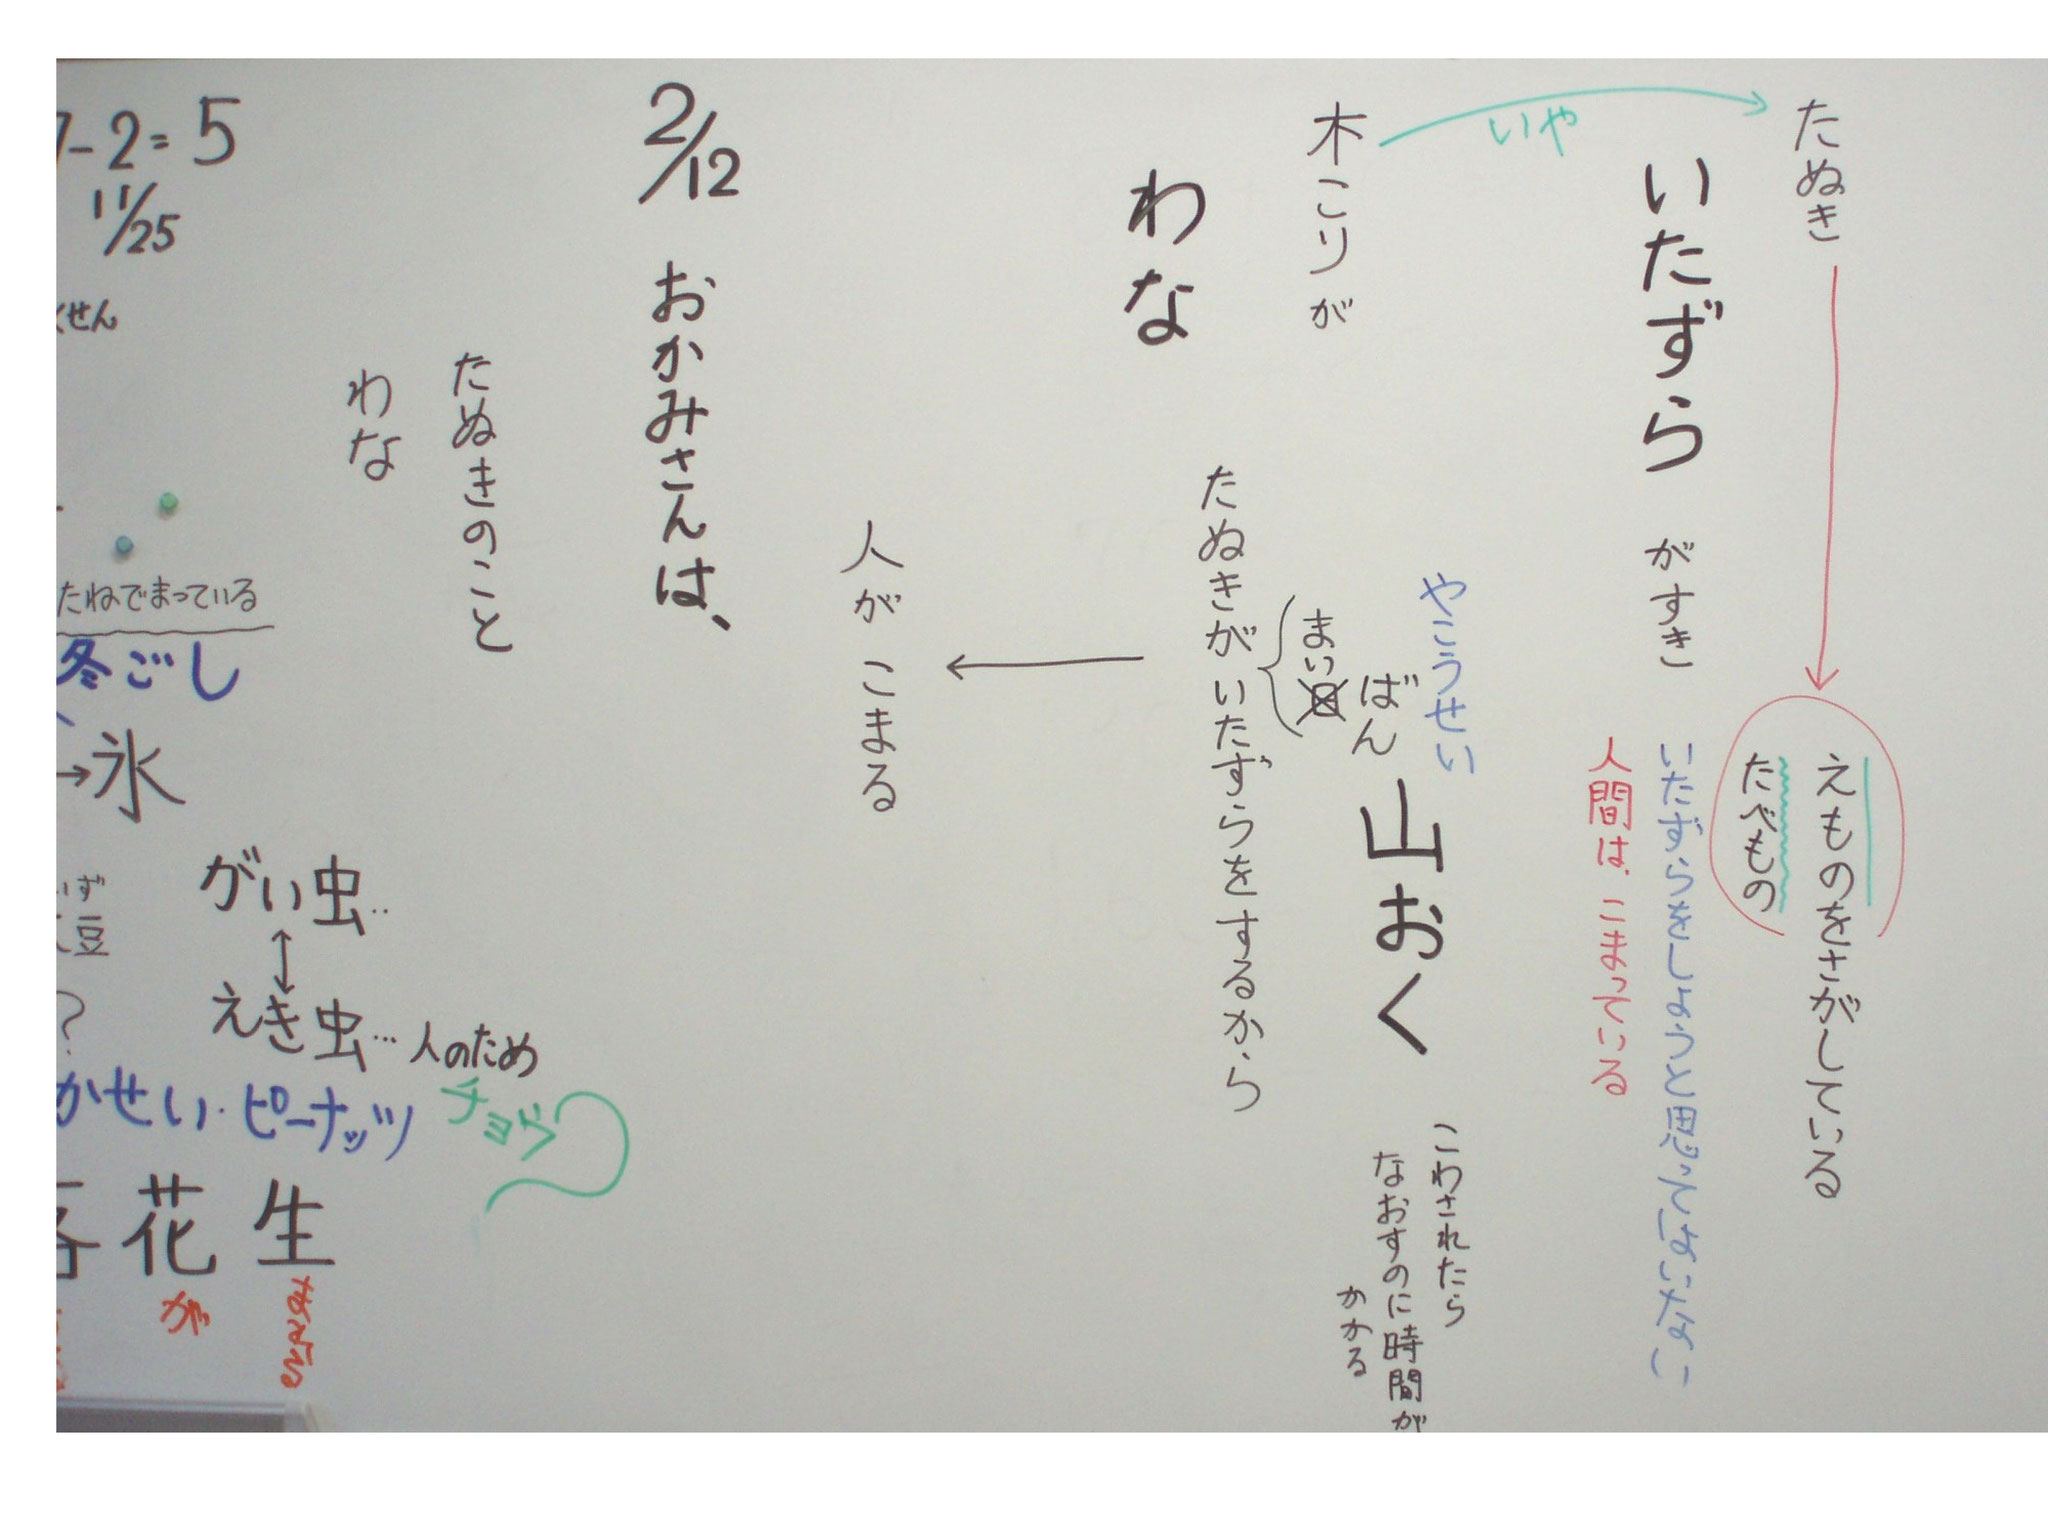 たぬき
えものをさがしている
たべもの
いたずらがすき
いたずらをしようと思ってはいない
人間は、こまっている
いや
木こりが
やこうせい
ばん
まい
山おく
こわされたら
なおすのに時間が
かかる
わな
たぬきがいたずらをするから
人がこまる
2/12
おかみさんは、
たぬきのこと
わな
7-2=5
11/25
くせん
たねでまっている
冬ごし
→氷
がい虫‥
えき虫…人のため
チョウ
豆
?
かせい・ピーナッツ
花生
が